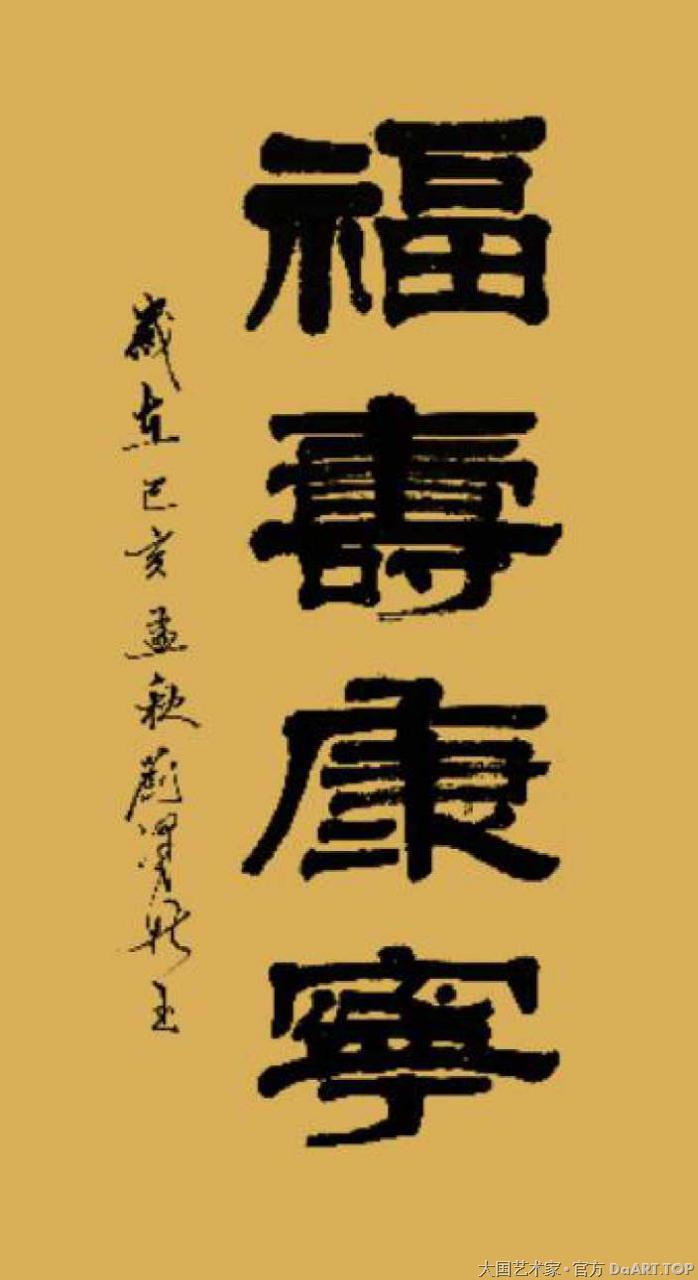 福壽康寧
歲在己亥孟秋
大国艺术家·官方 DaART.TOP